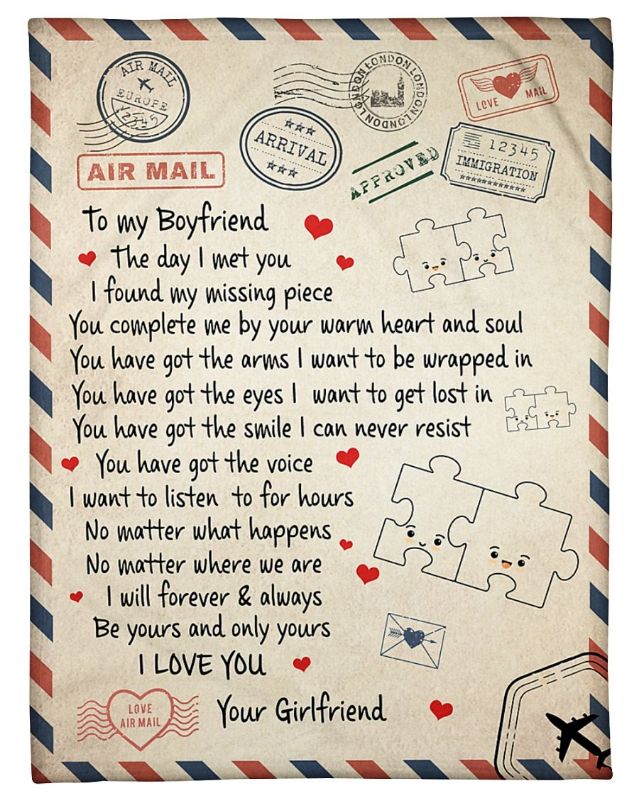 AIR MAIL
EUROPE
12345
LONDON LONDON LONDON LONDON LONDON
LOVE MAIL
ARRIVAL
APPROVED
12345
IMMIGRATION
AIR MAIL
To my Boyfriend
The day I met you
I found my missing piece
You complete me by your warm heart and soul
You have got the arms I want to be wrapped in
You have got the eyes I want to get lost in
You have got the smile I can never resist
You have got the voice
I want to listen to for hours
No matter what happens
No matter where we are
I will forever & always
Be yours and only yours
I LOVE YOU
Your Girlfriend
LOVE
AIR MAIL